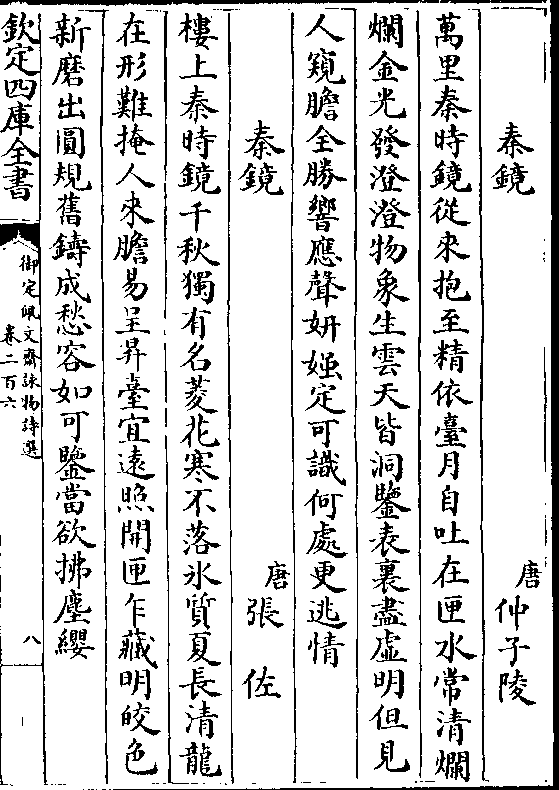 秦鏡
唐 仲子陵
萬里秦時鏡從來抱至精依臺月自吐在匣水常清爛
爛金光發澄澄物象生雲天皆洞鑒表裏盡虛明但見
人窺膽全勝響應聲妍媸定可識何處更逃情
秦鏡
唐 張佐
樓上秦時鏡千秋獨有名菱花寒不落氷質夏長清龍
在形難掩人來膽易呈昇臺宜遠照開匣乍藏明皎色
新磨出圓規舊鑄成愁容如可鑒當欲拂塵纓
欽定四庫全書
御定佩文齋詠物詩選
卷二百六
八